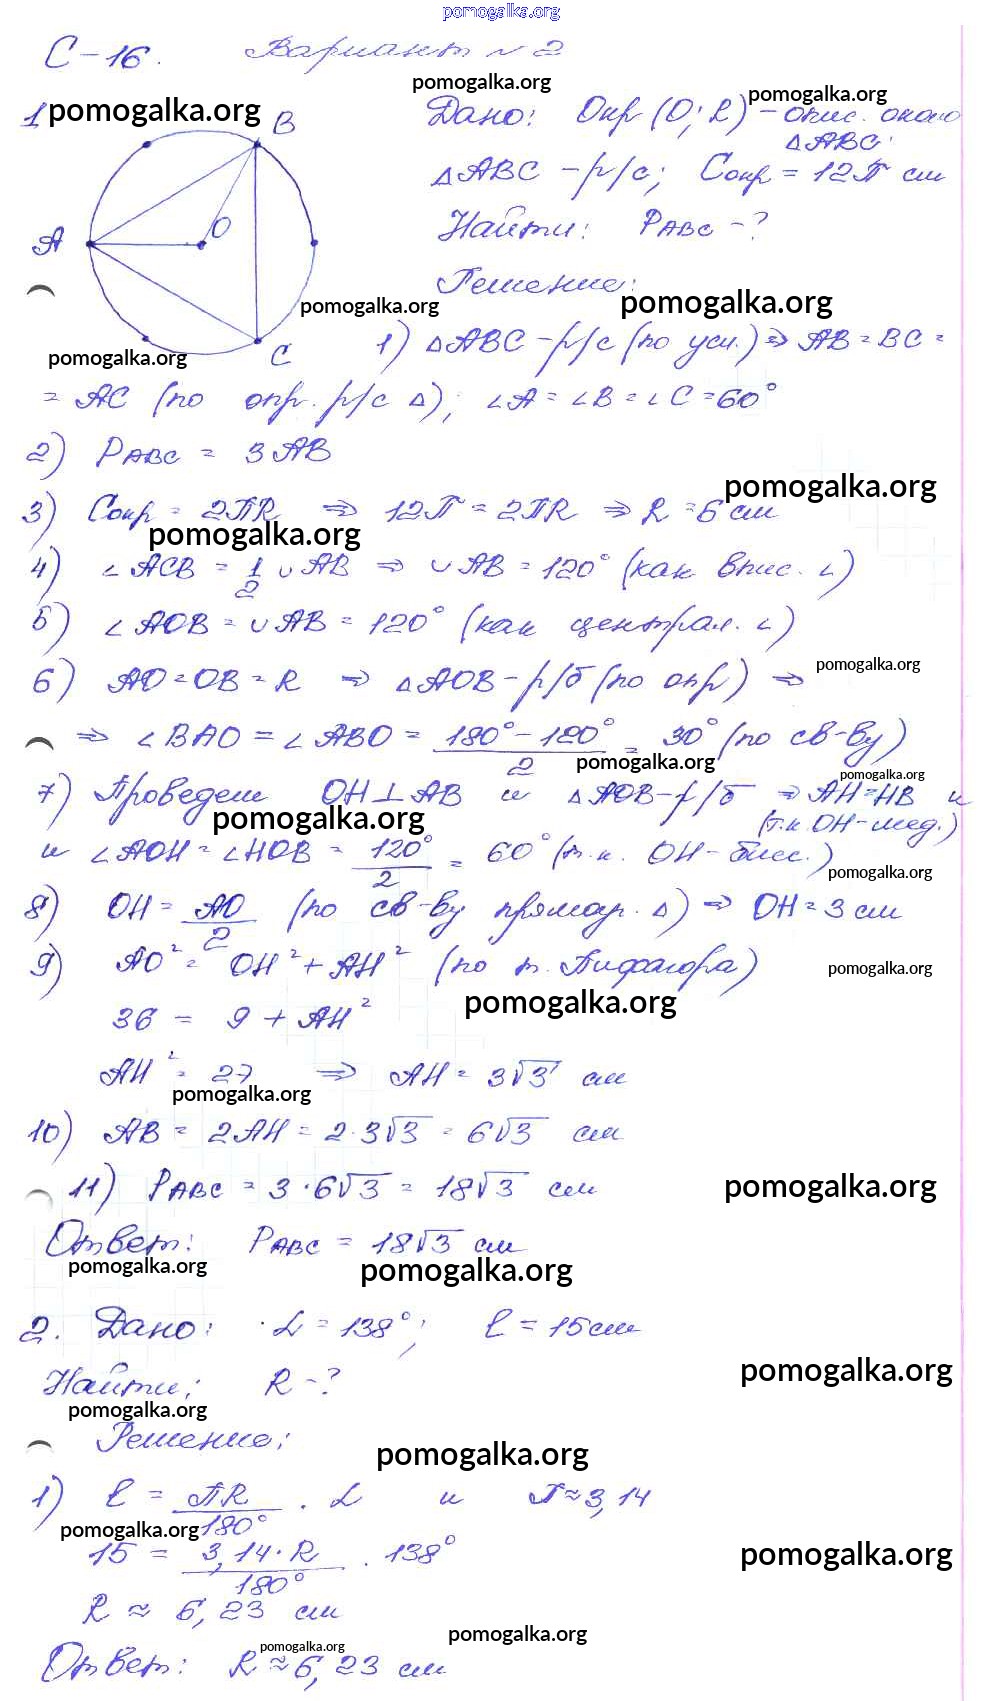 pomogalka.org
С-16. Вариант №2
pomogalka.org
1 pomogalka.org
pomogalka.org
Дано: Окр (O; R) - опис. около
ΔABC.
ΔABC - р/с; Cокр = 12π см
Найти: PABC - ?
Решение:
A B O C
pomogalka.org
pomogalka.org
pomogalka.org
1) ΔABC - р/с (по усл.) ⇒ AB = BC =
= AC (по опр. р/с Δ); ∠A = ∠B = ∠C = 60°
2) PABC = 3AB
pomogalka.org
3) Cокр = 2πR ⇒ 12π = 2πR ⇒ R = 6 см
pomogalka.org
4) ∠ACB = 1/2 ∪AB ⇒ ∪AB = 120° (как впис. ∠)
5) ∠AOB = ∪AB = 120° (как централ. ∠)
pomogalka.org
6) AO = OB = R ⇒ ΔAOB - р/б (по опр) ⇒
⇒ ∠BAO = ∠ABO = (180° - 120°)/2 = 30° (по св-ву)
pomogalka.org
pomogalka.org
7) Проведем OH ⊥ AB и ΔAOB - р/б ⇒ AH = HB и
pomogalka.org
(т.к. OH - мед.)
и ∠AOH = ∠HOB = 120°/2 = 60° (т.к. OH - бисс.)
pomogalka.org
8) OH = AO/2 (по св-ву прямоуг. Δ) ⇒ OH = 3 см
9) AO² = OH² + AH² (по т. Пифагора)
pomogalka.org
pomogalka.org
36 = 9 + AH²
AH² = 27 ⇒ AH = 3√3 см
pomogalka.org
10) AB = 2AH = 2·3√3 = 6√3 см
11) PABC = 3·6√3 = 18√3 см
pomogalka.org
Ответ: PABC = 18√3 см
pomogalka.org
pomogalka.org
2. Дано: α = 138°; ℓ = 15 см
pomogalka.org
Найти: R - ?
pomogalka.org
Решение:
pomogalka.org
1) ℓ = πR/180° · α и π ≈ 3,14
pomogalka.org
15 = 3,14·R/180° · 138°
pomogalka.org
R ≈ 6,23 см
pomogalka.org
pomogalka.org
Ответ: R ≈ 6,23 см